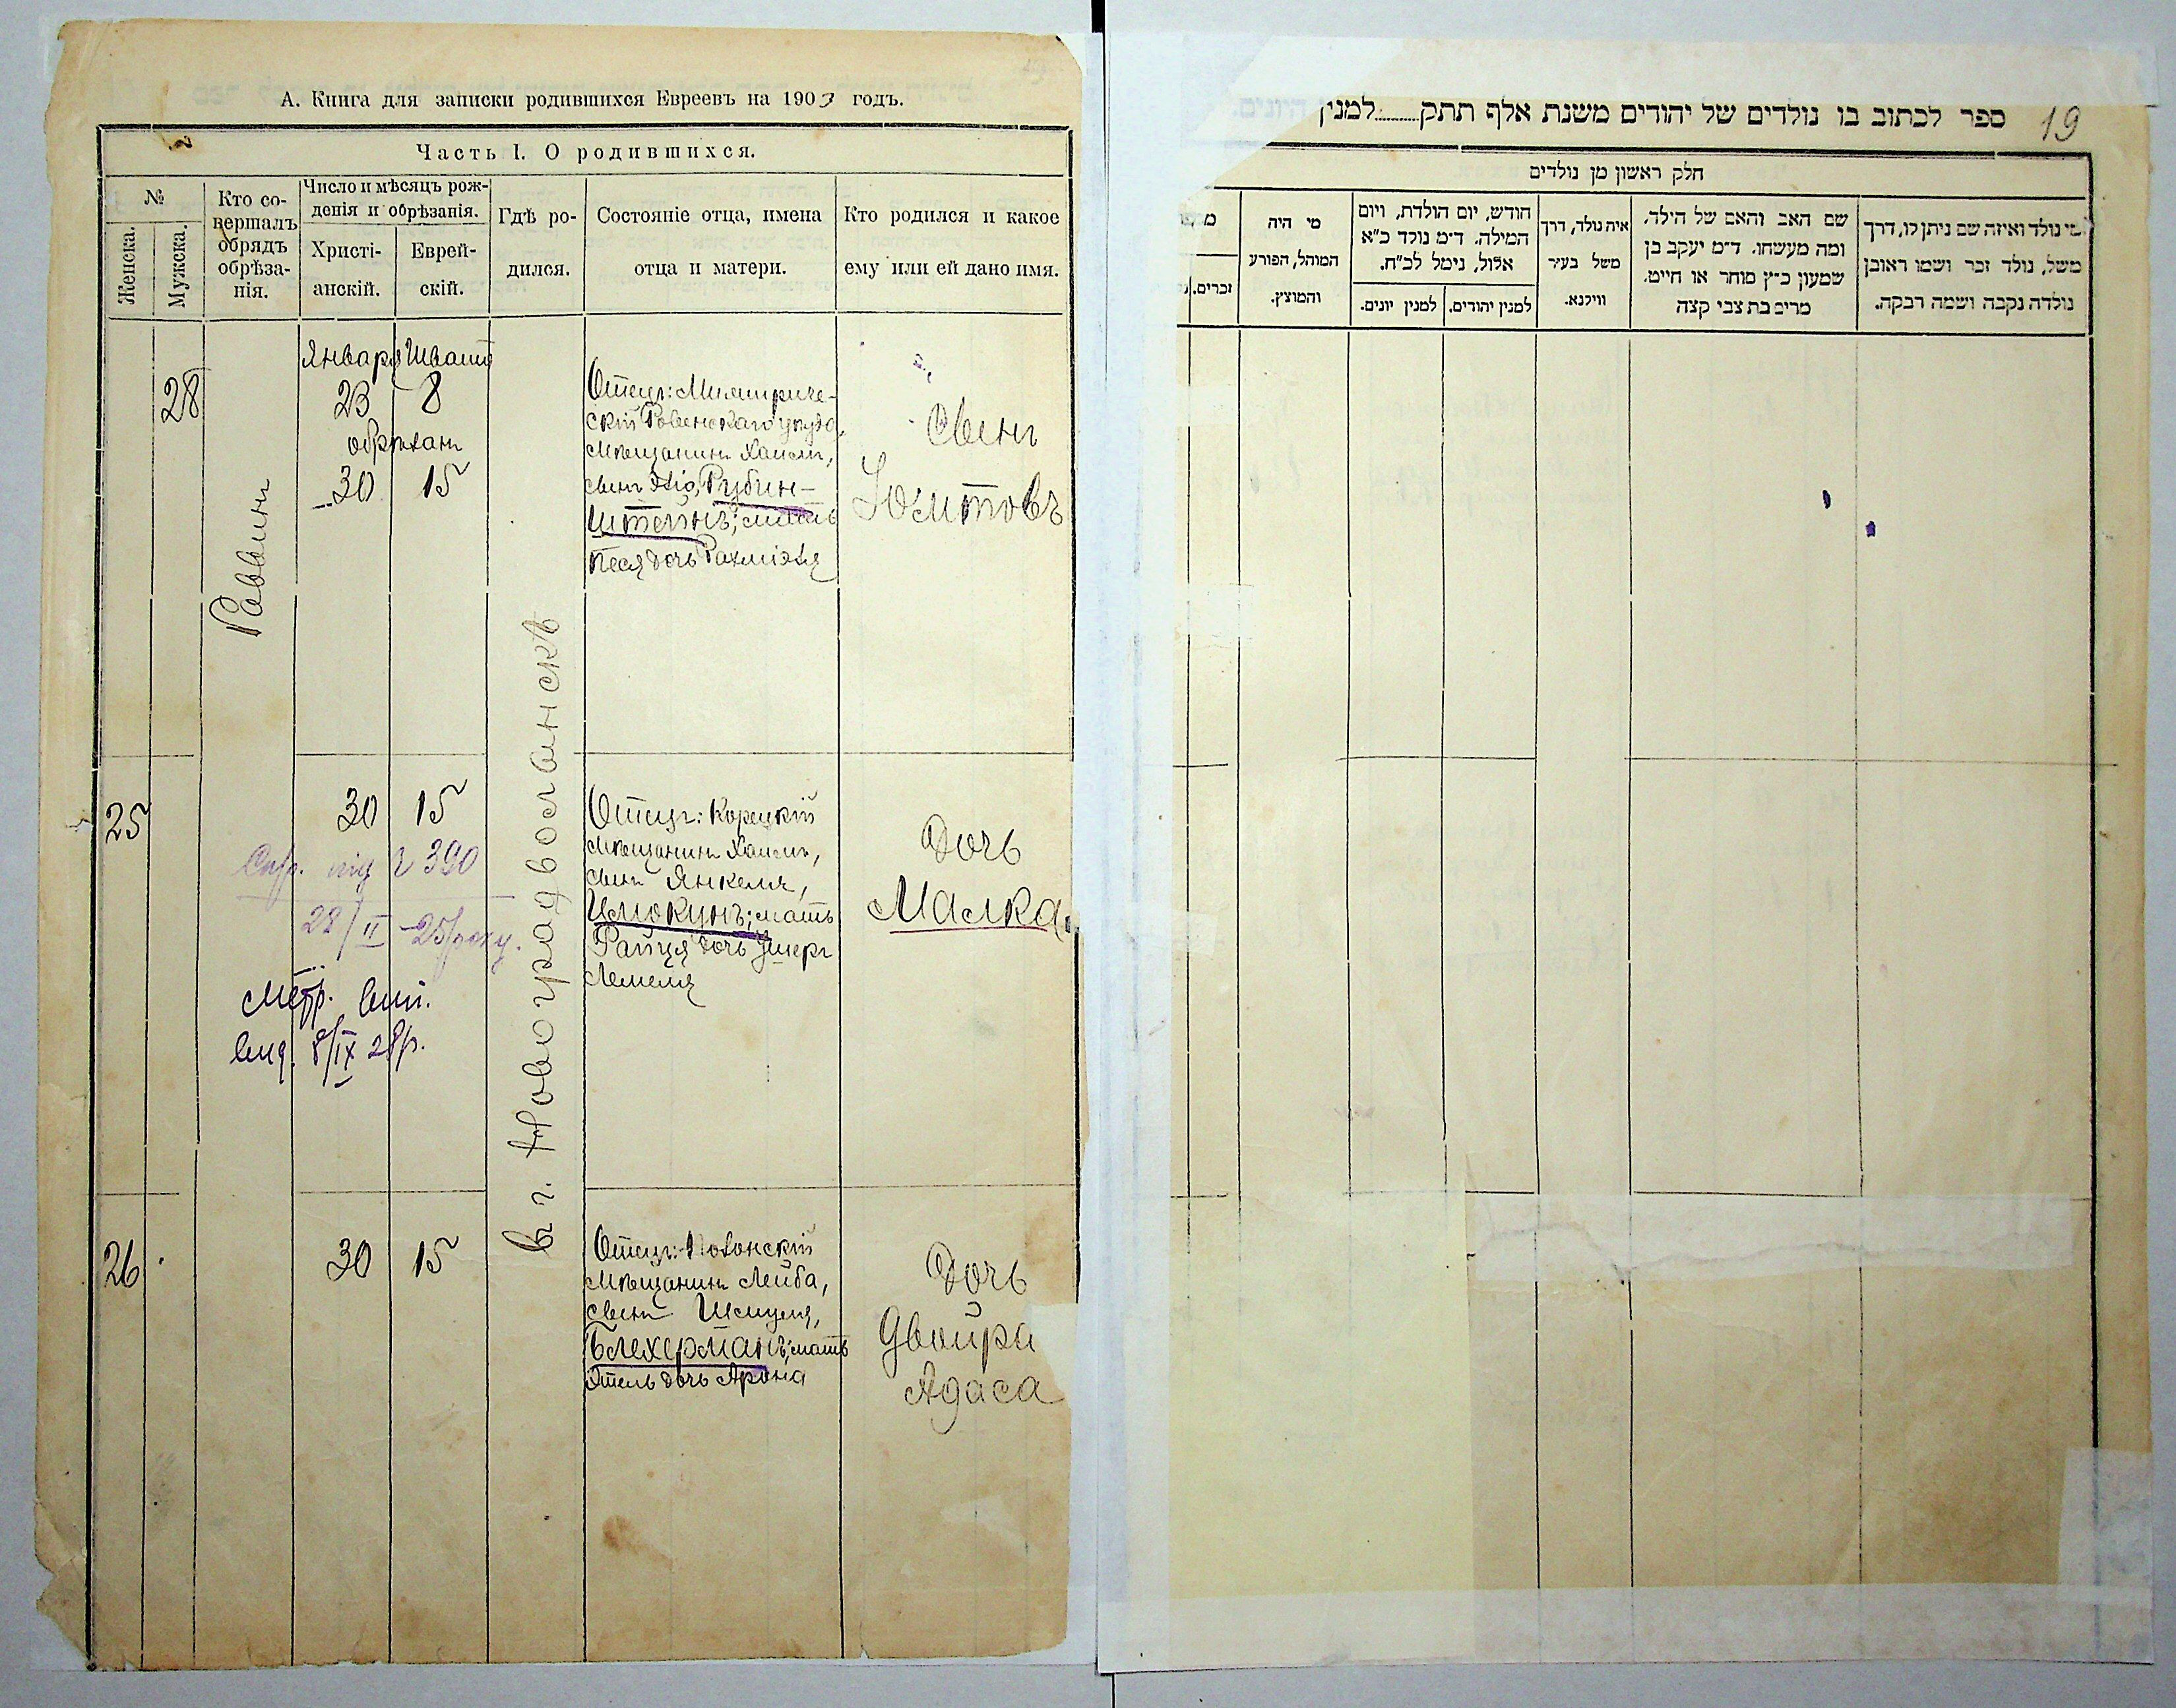 А. Книга для записки родившихся Евреевъ на 1903 годъ.
Часть I. О родившихся.
№
Женска.
Мужска.
Кто со-
вершалъ
обрядъ
обрѣза-
нія.
Число и мѣсяцъ рож-
денія и обрѣзанія.
Христі-
анскій.
Еврей-
скій.
Гдѣ ро-
дился.
Состояніе отца, имена
отца и матери.
Кто родился и какое
ему или ей дано имя.
28
Раввинъ
Января Шватъ
23 8
обрѣзанъ
30 15
въ г. Новоградволынскѣ
Отецъ: Межириче-
скій Ровенскаго уѣзда,
мѣщанинъ Хаимъ,
сынъ Эліо, Рубин-
штейнъ; мать
Песя дочь Рахміэля
Сынъ
Юмтовъ
25
30 15
390
28/II -25/року.
Метр. вип.
вид. 8/IX 28 р.
Отецъ: Корецкій
мѣщанинъ Хаимъ,
сынъ Янкеля,
Цмокунъ; мать
Райця дочь Ушера
Лемеля
Дочь
Малка
26
30 15
Отецъ: Полонскій
мѣщанинъ Лейба,
сынъ Шмуля,
Блехерманъ; мать
Этель дочь Арона
Дочь
Двойра
Адаса
19
ספר לכתוב בו נולדים של יהודים משנת אלף תתק למנין היונים.
חלק ראשון מן נולדים
מי נולד ואיזה שם ניתן לו, דרך
משל, נולד זכר ושמו ראובן
נולדה נקבה ושמה רבקה.
שם האב והאם של הילד.
ומה מעשהו. ד"מ יעקב בן
שמעון כ"ץ סוחר או חייט.
מרים בת צבי קצה
איה נולד, דרך
משל בעיר
ווילנא.
חודש, יום הולדת, ויום
המילה. ד"מ נולד כ"א
אלול, נימל לכ"ח.
למנין יהודים.
למנין יונים.
מי היה
המוהל, הפורע
והמוצץ.
זכרים.